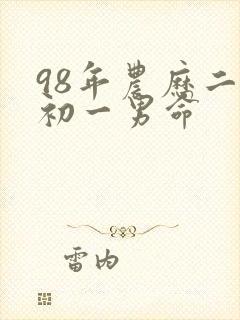 98年農历二
初一男命
雷内